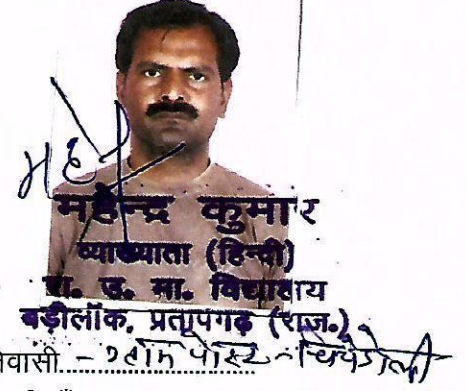 महेन्द्र कुमार
व्याख्याता (हिन्दी)
रा. उ. मा. विद्यालय
बड़ीलॉक, प्रतापगढ़ (राज.)
निवासी - पोस्ट -